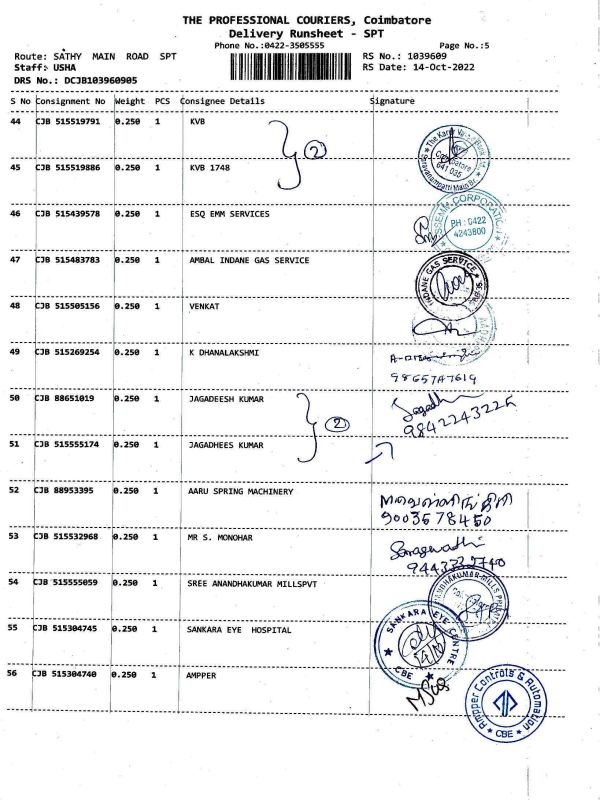 THE PROFESSIONAL COURIERS, Coimbatore
Delivery Runsheet - SPT
Phone No.:0422-3505555 Page No.:5
Route: SATHY MAIN ROAD SPT RS No.: 1039609
Staff: USHA RS Date: 14-Oct-2022
DRS No.: DCJB103960905
S No Consignment No Weight PCS Consignee Details Signature
44 CJB 515519791 0.250 1 KVB
2
45 CJB 515519886 0.250 1 KVB 1748
641 035
46 CJB 515439578 0.250 1 ESQ EMM SERVICES
PH : 0422
4243800
47 CJB 515483783 0.250 1 AMBAL INDANE GAS SERVICE
INDANE GAS SERVICE
48 CJB 515505156 0.250 1 VENKAT
49 CJB 515269254 0.250 1 K DHANALAKSHMI
9865747619
50 CJB 88651019 0.250 1 JAGADEESH KUMAR
Jagadhi
9842243225
2
51 CJB 515555174 0.250 1 JAGADHEES KUMAR
52 CJB 88953395 0.250 1 AARU SPRING MACHINERY
9003578450
53 CJB 515532968 0.250 1 MR S. MONOHAR
Saraswathi
54 CJB 515555059 0.250 1 SREE ANANDHAKUMAR MILLSPVT
55 CJB 515304745 0.250 1 SANKARA EYE HOSPITAL
SANKARA EYE CENTRE
CBE
56 CJB 515304740 0.250 1 AMPPER
Ampper Controls & Automation
CBE